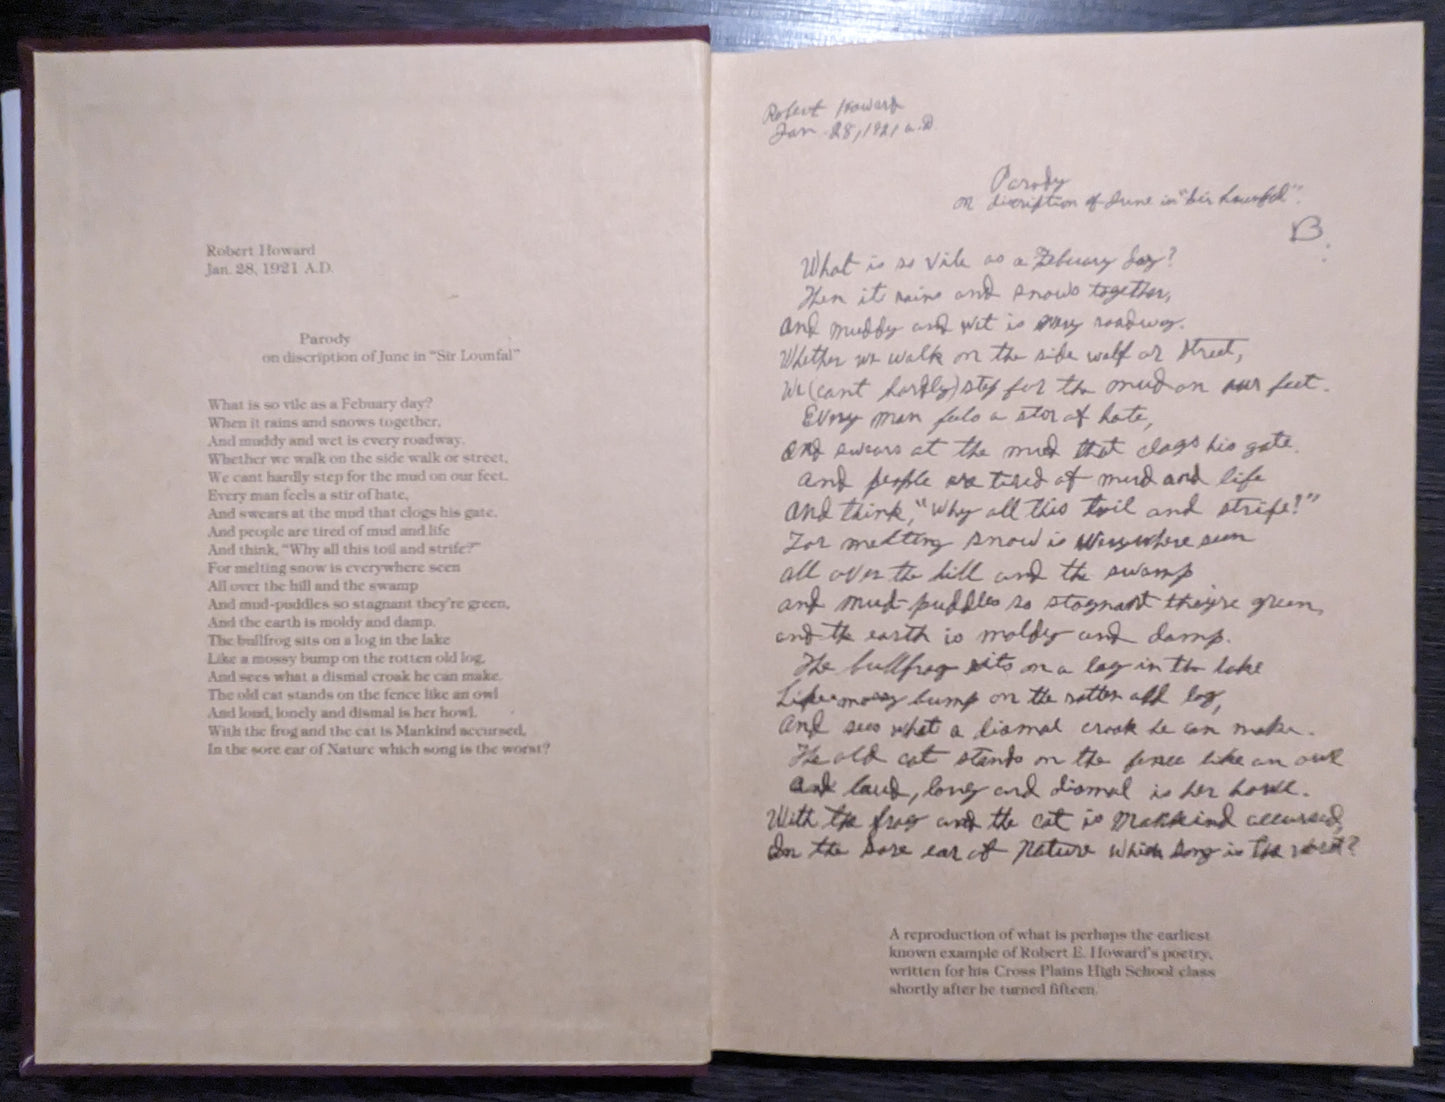 Robert Howard
Jan. 28, 1921 A.D.
Parody
on discription of June in "Sir Lounfal"
What is so vile as a Febuary day?
When it rains and snows together,
And muddy and wet is every roadway.
Whether we walk on the side walk or street,
We cant hardly step for the mud on our feet.
Every man feels a stir of hate,
And swears at the mud that clogs his gate.
And people are tired of mud and life
And think, "Why all this toil and strife?"
For melting snow is everywhere seen
All over the hill and the swamp
And mud-puddles so stagnant they're green,
And the earth is moldy and damp.
The bullfrog sits on a log in the lake
Like a mossy bump on the rotten old log,
And sees what a dismal croak he can make.
The old cat stands on the fence like an owl
And loud, lonely and dismal is her howl.
With the frog and the cat is Mankind accursed,
In the sore ear of Nature which song is the worst?
Robert Howard
Jan. 28, 1921 A.D.
Parody
on discription of June in "Sir Lounfal".
B.
What is so vile as a Febuary day?
When it rains and snows together,
And muddy and wet is every roadway.
Whether we walk on the side walk or street,
We (cant hardly) step for the mud on our feet.
Every man feels a stir of hate,
And swears at the mud that clogs his gate.
And people are tired of mud and life
And think, "Why all this toil and strife?"
For melting snow is everywhere seen
all over the hill and the swamp
and mud-puddles so stagnant they're green,
and the earth is moldy and damp.
The bullfrog sits on a log in the lake
Like mossy bump on the rotten old log,
And sees what a dismal croak he can make.
The old cat stands on the fence like an owl
And loud, lonely and dismal is her howl.
With the frog and the cat is Mankind accursed,
In the sore ear of Nature which song is the worst?
A reproduction of what is perhaps the earliest
known example of Robert E. Howard's poetry,
written for his Cross Plains High School class
shortly after he turned fifteen.